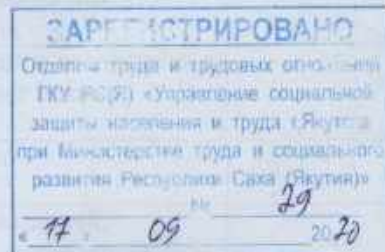 ЗАРЕГИСТРИРОВАНО
Отделом труда и трудовых отношений
ГКУ РС(Я) «Управление социальной
защиты населения и труда г.Якутска
при Министерстве труда и социального
развития Республики Саха (Якутия)»
№ 29
« 17 » 09 2020